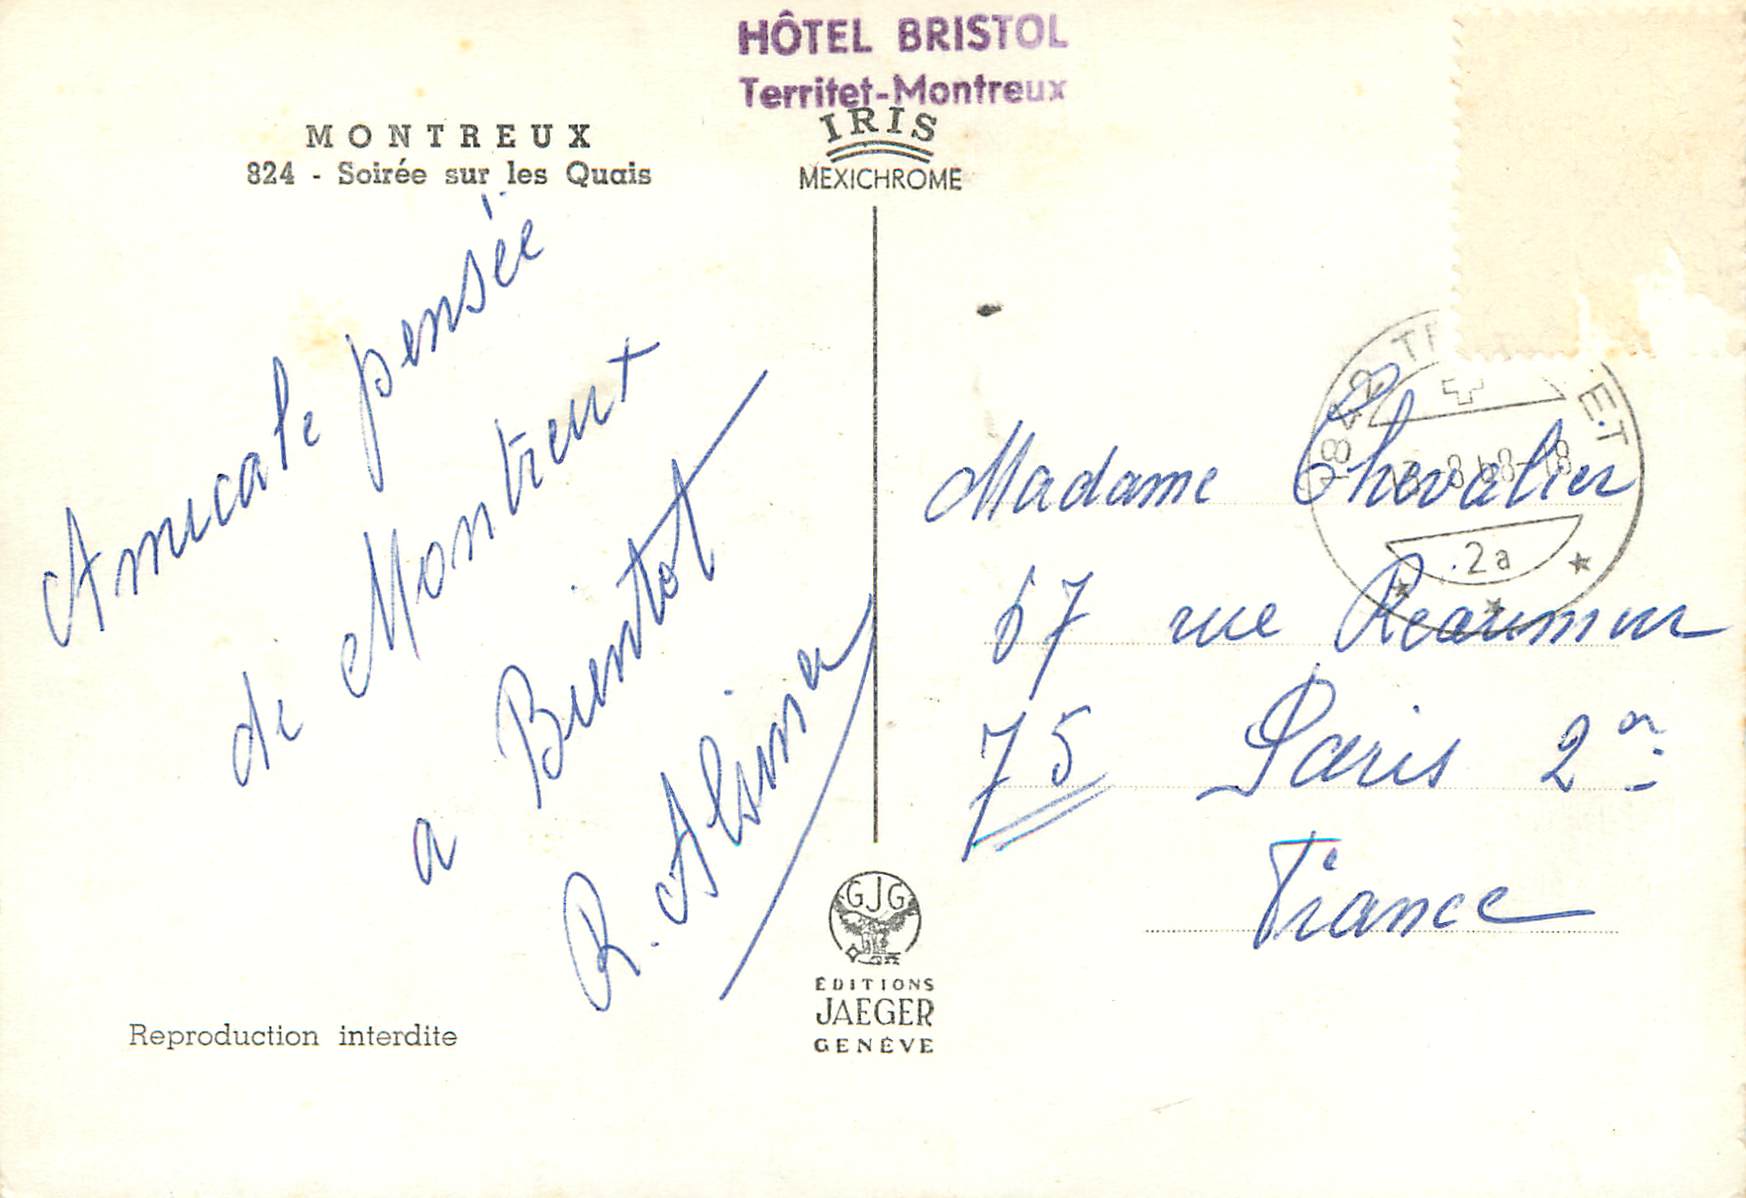 HÔTEL BRISTOL
Territet-Montreux
IRIS
MEXICHROME
MONTREUX
824 - Soirée sur les Quais
Amicale pensée
de Montreux
a Bientot
R. Alsina
Madame Chevalier
67 rue Reaumur
75 Paris 2
France
1842 T ET
8 68-18
2a
GJG
ÉDITIONS
JAEGER
GENÈVE
Reproduction interdite